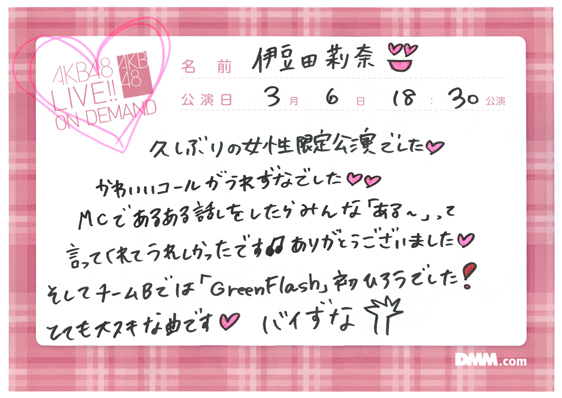 AKB48
LIVE!!
ON DEMAND
AKB
48
名前 伊豆田莉奈
公演日 3月6日 18:30公演
久しぶりの女性限定公演でした
かわいいコールがうれずなでした
MCであるある話しをしたらみんな「ある~」って
言ってくれてうれしかったです♫ありがとうございました
そしてチームBでは「GreenFlash」初ひろうでした!
とても大スキな曲です バイずな
DMM.com